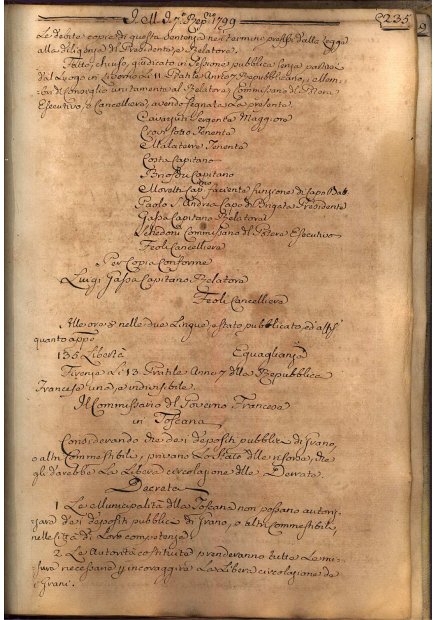 1799
235
Le dovute copie di questa Sentenza nei termini prefissi dalla Legge
alla diligenza del Presidente, e Relatore.
Fatto, chiuso, giudicato in Sessione pubblica senza
dal Luogo in Livorno li 11 Pratile Anno 7. Repubblicano, i
del Consiglio unitamente al Relatore, Commissario del Potere
Esecutivo, e Cancelliere, avendo segnata La presente.
Sergente Maggiore
Tenente
Malaterre Tenente
Costa Capitano
Capitano
facente funzione di Capo
Paolo S. Andrea Capo di Brigata Presidente
Gassa Capitano Relatore
Commissario del Potere Esecutivo
Feoli Cancelliere
Per Copia Conforme
Luigi Gassa Capitano Relatore
Feoli Cancelliere
nelle due Lingue, e stato pubblicato, ed
quanto appo
135 Libertà Eguaglianza
Firenze Li 13 Pratile Anno 7 della Repubblica
Francese una, e indivisibile.
Il Commissario del Governo Francese
in Toscana
Considerando che dei depositi pubblici di Grano,
o altri Commestibili, privano Lo Stato delle risorse, che
gli darebbe La Libera circolazione delle Derrate.
Decreta
1 Le Municipalità della Toscana non possano autoriz-
zare dei depositi pubblici di Grano, o altri Commestibili,
nelle Città di Loro competenza.
2. Le Autorità costituite prenderanno tutte Le mi-
sure necessarie p incoraggire La Libera circolazione de
Grani.